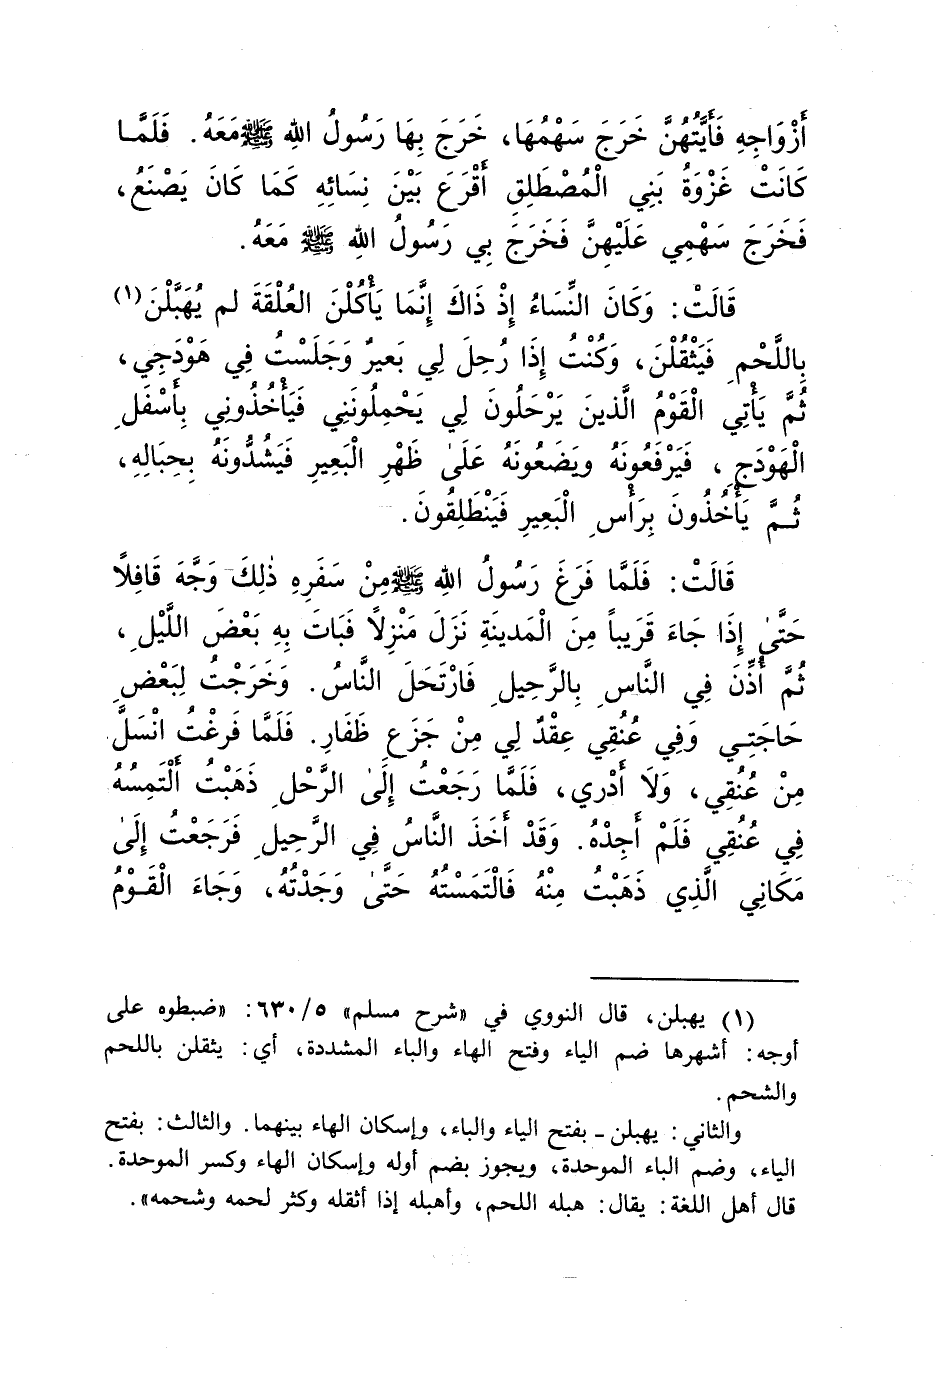 أَزْوَاجِهِ فَأَيَّتُهُنَّ خَرَجَ سَهْمُهَا، خَرَجَ بِهَا رَسُولُ اللهِ ﷺ مَعَهُ. فَلَمَّا
كَانَتْ غَزْوَةُ بَنِي الْمُصْطَلِقِ أَقْرَعَ بَيْنَ نِسَائِهِ كَمَا كَانَ يَصْنَعُ،
فَخَرَجَ سَهْمِي عَلَيْهِنَّ فَخَرَجَ بِي رَسُولُ اللهِ ﷺ مَعَهُ.
قَالَتْ: وَكَانَ النِّسَاءُ إِذْ ذَاكَ إِنَّمَا يَأْكُلْنَ العُلْقَةَ لم يُهَبَّلْنَ(١)
بِاللَّحْمِ فَيَثْقُلْنَ، وَكُنْتُ إِذَا رُحِلَ لِي بَعِيرٌ وَجَلَسْتُ فِي هَوْدَجِي،
ثُمَّ يَأْتِي الْقَوْمُ الَّذينَ يَرْحَلُونَ لِي يَحْمِلُونَنِي فَيَأْخُذُونِي بِأَسْفَلِ
الْهَوْدَجِ، فَيَرْفَعُونَهُ ويَضَعُونَهُ عَلَىٰ ظَهْرِ الْبَعِيرِ فَيَشُدُّونَهُ بِحِبَالِهِ،
ثُمَّ يَأْخُذُونَ بِرَأْسِ الْبَعِيرِ فَيَنْطَلِقُونَ.
قَالَتْ: فَلَمَّا فَرَغَ رَسُولُ اللهِ ﷺ مِنْ سَفَرِهِ ذٰلِكَ وَجَّهَ قَافِلًا
حَتَّىٰ إِذَا جَاءَ قَرِيباً مِنَ الْمَدينَةِ نَزَلَ مَنْزِلًا فَبَاتَ بِهِ بَعْضَ اللَّيْلِ،
ثُمَّ أُذِّنَ فِي النَّاسِ بِالرَّحِيلِ فَارْتَحَلَ النَّاسُ. وَخَرَجْتُ لِبَعْضِ
حَاجَتِي وَفِي عُنُقِي عِقْدٌ لِي مِنْ جَزَعِ ظَفَارِ. فَلَمَّا فَرغْتُ انْسَلَّ
مِنْ عُنُقِي، وَلَا أَدْرِي، فَلَمَّا رَجَعْتُ إِلَىٰ الرَّحْلِ ذَهَبْتُ أَلْتَمِسُهُ
فِي عُنُقِي فَلَمْ أَجِدْهُ. وَقَدْ أَخَذَ النَّاسُ فِي الرَّحِيلِ فَرَجَعْتُ إِلَىٰ
مَكَانِي الَّذِي ذَهَبْتُ مِنْهُ فَالْتَمَسْتُهُ حَتَّىٰ وَجَدْتُهُ، وَجَاءَ الْقَوْمُ
(١) يهبلن، قال النووي في «شرح مسلم» ٥/٦٣٠: «ضبطوه على
أوجه: أشهرها ضم الياء وفتح الهاء والباء المشددة، أي: يثقلن باللحم
والشحم.
والثاني: يهبلن - بفتح الياء والباء، وإسكان الهاء بينهما. والثالث: بفتح
الياء، وضم الباء الموحدة، ويجوز بضم أوله وإسكان الهاء وكسر الموحدة.
قال أهل اللغة: يقال: هبله اللحم، وأهبله إذا أثقله وكثر لحمه وشحمه».